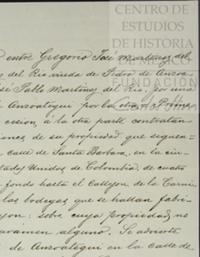 CENTRO DE
ESTUDIOS
DE HISTORIA
FUNDACIÓN
entre Gregorio José Martínez del
del Río viuda de Pedro de Anzoa
José Pablo Martínez del Río, por una
Anzoategui por la otra
cesión, á la otra parte contratan
ones de su propiedad que siguen
calle de Santa Barbara, en la
tados Unidos de Colombia, de cuatro
fondo hasta el callejon de la
las bodegas, que se hallan fabri
sobre cuya propiedad no
gravamen alguno. Se advierte
de Anzoategui en la calle de